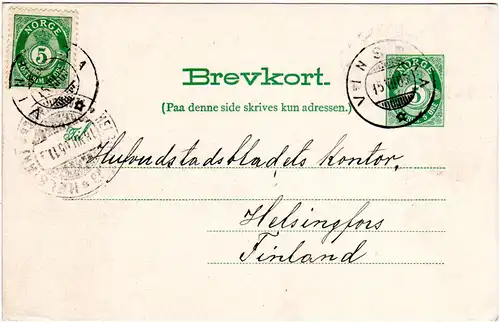 NORGE
5
Brevkort.
(Paa denne side skrives kun adressen.)
5
Til
Hufvudstadsbladets Kontor,
Helsingfors
Finland